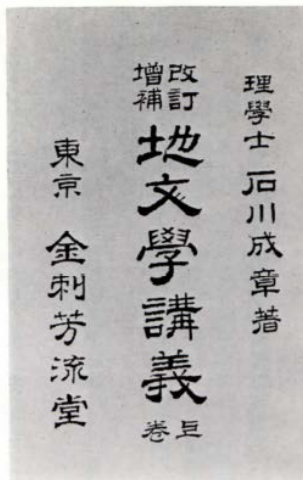 理學士 石川成章著
改訂
增補
地文學講義
巨卷
東京 金刺芳流堂